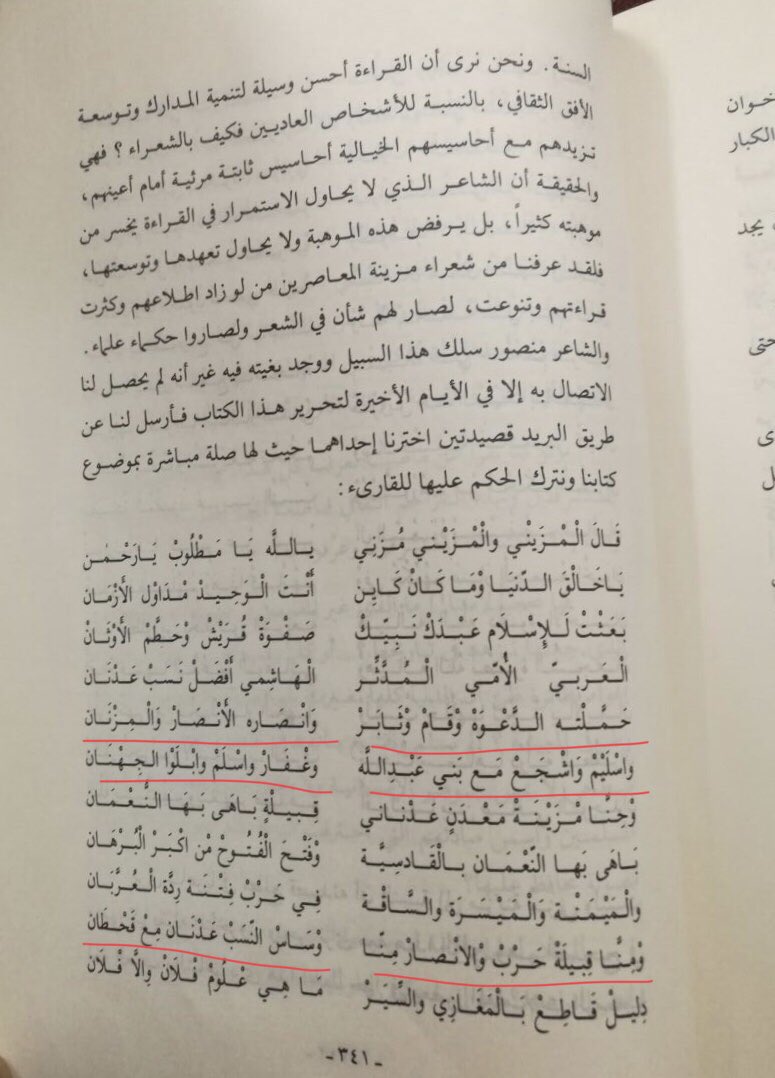 السنة. ونحن نرى أن القراءة أحسن وسيلة لتنمية المدارك وتوسعة
الأفق الثقافي، بالنسبة للأشخاص العاديين فكيف بالشعراء؟ فهي
تزيدهم مع أحاسيسهم الخيالية أحاسيس ثابتة مرئية أمام أعينهم،
والحقيقة أن الشاعر الذي لا يحاول الاستمرار في القراءة يخسر من
موهبته كثيراً، بل يرفض هذه الموهبة ولا يحاول تعهدها وتوسعتها،
فلقد عرفنا من شعراء مزينة المعاصرين من لو زاد اطلاعهم وكثرت
قراءتهم وتنوعت، لصار لهم شأن في الشعر ولصاروا حكماء علماء.
والشاعر منصور سلك هذا السبيل ووجد بغيته فيه غير أنه لم يحصل لنا
الاتصال به إلا في الأيام الأخيرة لتحرير هذا الكتاب فأرسل لنا عن
طريق البريد قصيدتين اخترنا إحداهما حيث لها صلة مباشرة بموضوع
كتابنا ونترك الحكم عليها للقارىء:
قَالَ الْمْزَيْنْي والْمْزَيْنْي مُزَنِي يالله يَا مَطْلُوبْ يَارَحْمٰن
يَاخَالْقَ الدّنْيَا وْمَا كَانْ كَايِن أَنْتَ الْوَحِيدْ مْدَاوْل الأَزْمَان
بَعَثْتْ لَلإِسْلَام عَبْدَكْ نَبِيَّكْ صَفْوَةْ قُرَيْشْ وْحَطَّمْ الأَوْثَانْ
الْعَرَبيّ الأُمّي الْمُدَّثِّر الْهَاشِمي أَفْضَلْ نَسَبْ عَدْنَان
حَمَّلْتَه الدَّعْوَهْ وْقَامْ وْثَابَرْ وَانْصَاره الأَنْصَارْ وَالْمِزْنَان
وِاسْلَيْمْ وَاشْجَعْ مَع بَني عَبْدِاللَّه وغْفَارْ واسْلَمْ وابْلَوْا الجِهْنَان
وْحِنَّا مْزَيْنَةْ مَعْدَنٍ عَدْنَاني قِبيلَةٍ بَاهَى بَهَا النَّعْمَان
بَاهَى بهَا النّعْمَان بِالْقَادسِيَّة وْفَتْحَ الْفْتُوحْ مْن اكْبَرْ الْبُرْهَان
والْمَيْمَنْة وَالْمَيْسَرَة والسَّاقْة فِي حَرْبْ فِتْنَة رِدَّة الْعُرْبَان
وْمِنَّا قبِيلَةْ حَرْبْ وْالانْصَارْ مِنَّا وْسَاسْ النّسَبْ عَدْنَان مِعْ قَحْطَان
دِلِيلْ قَاطِعْ بَالْمَغَازِي والسَّيَرْ مَا هِي عْلُومْ فْلَانْ وِالَّا فْلَان
- ٣٤١ -
خوان
الكبار
يجد
حتى